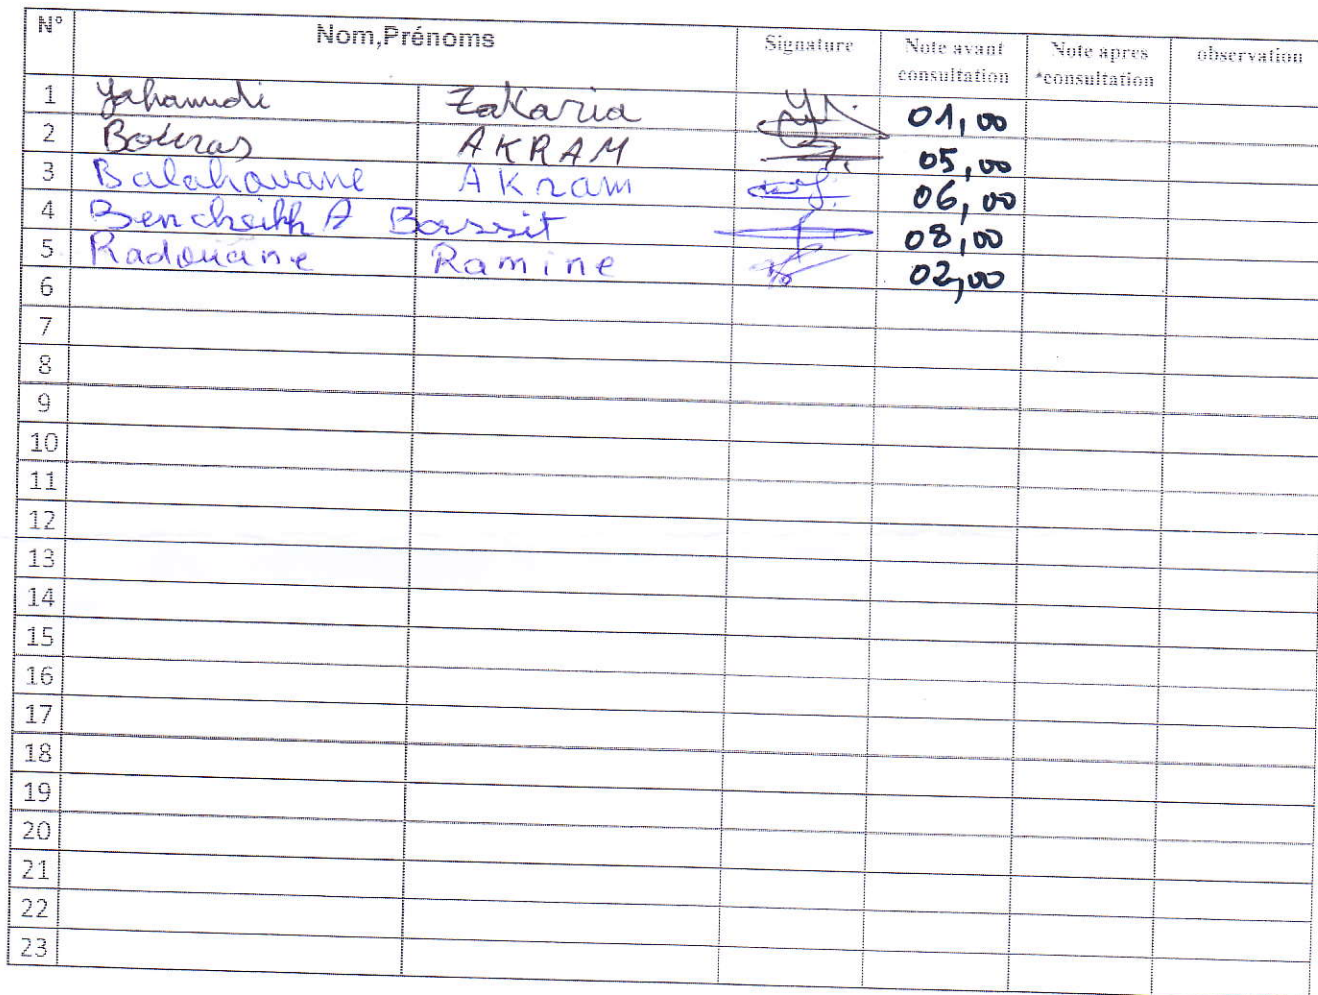 N° Nom,Prénoms Signature Note avant consultation Note apres *consultation observation
1 Yahamdi Zakaria 01,00
2 Bouras AKRAM 05,00
3 Balahouane Akram 06,00
4 Bencheikh A Bassit 08,00
5 Radouane Ramine 02,00
6
7
8
9
10
11
12
13
14
15
16
17
18
19
20
21
22
23